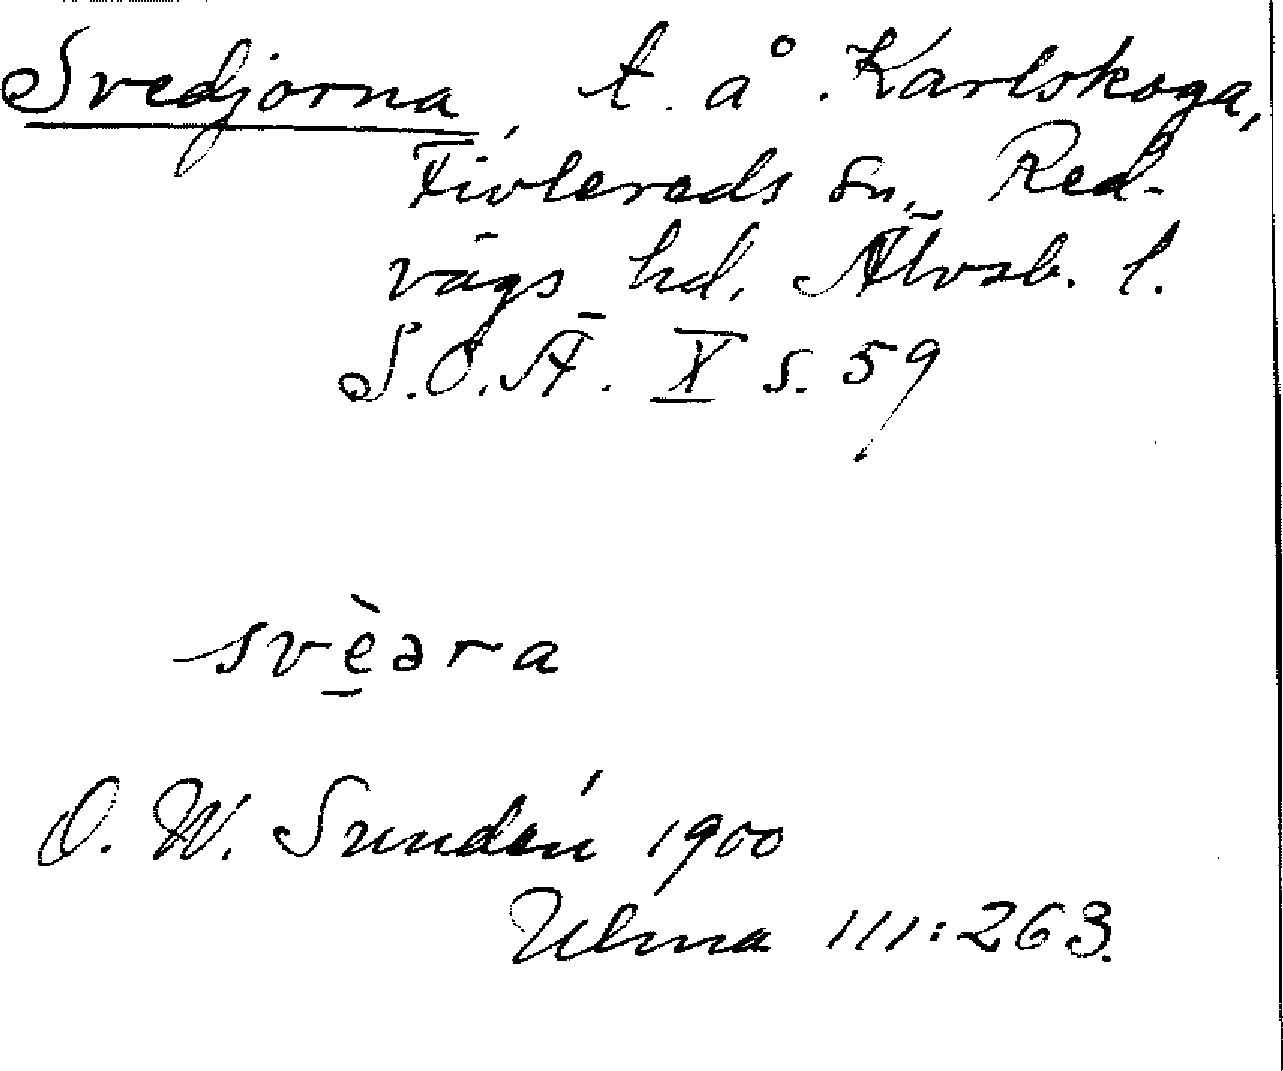 Svedjorna, t. å Karlskoga,
Fivlereds sn, Red-
vägs hd, Älvsb. l.
S.O.Ä. X s. 59
svèəra
D. W. Sundén 1900
Ulma 111:263.